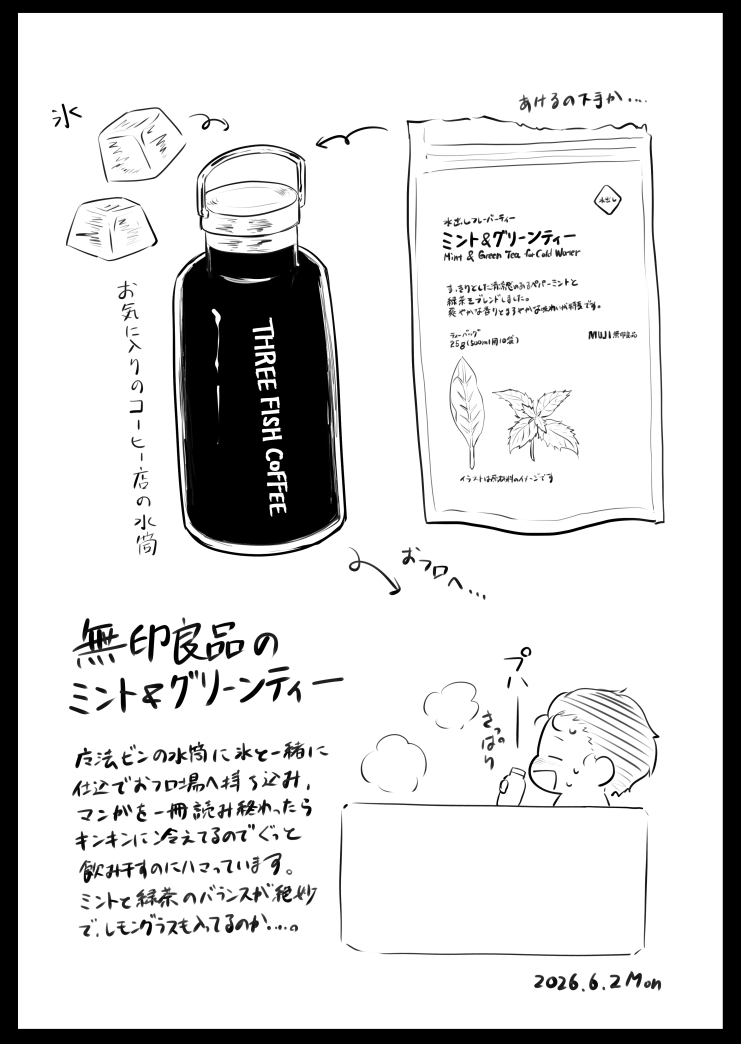 あけるの下手か....
氷
水出し
水出しフレーバーティー
ミント&グリーンティー
Mint & Green Tea for Cold Water
すっきりとした清涼感のあるペパーミントと
緑茶をブレンドしました。
爽やかな香りとまろやかな味わいが特長です。
ティーバッグ
25g(500ml用10袋)
MUJI 無印良品
イラストは原材料のイメージです
THREE FISH COFFEE
お気に入りのコーヒー店の水筒
おフロへ...
無印良品の
ミント&グリーンティー
プハー
さっぱり
魔法ビンの水筒に氷と一緒に
仕込でおフロ場へ持ち込み,
マンガを一冊読み終わったら
キンキンに冷えてるのでぐっと
飲み干すのにハマっています。
ミントと緑茶のバランスが絶妙
で、レモングラスも入ってるのか....。
2026.6.2 Mon